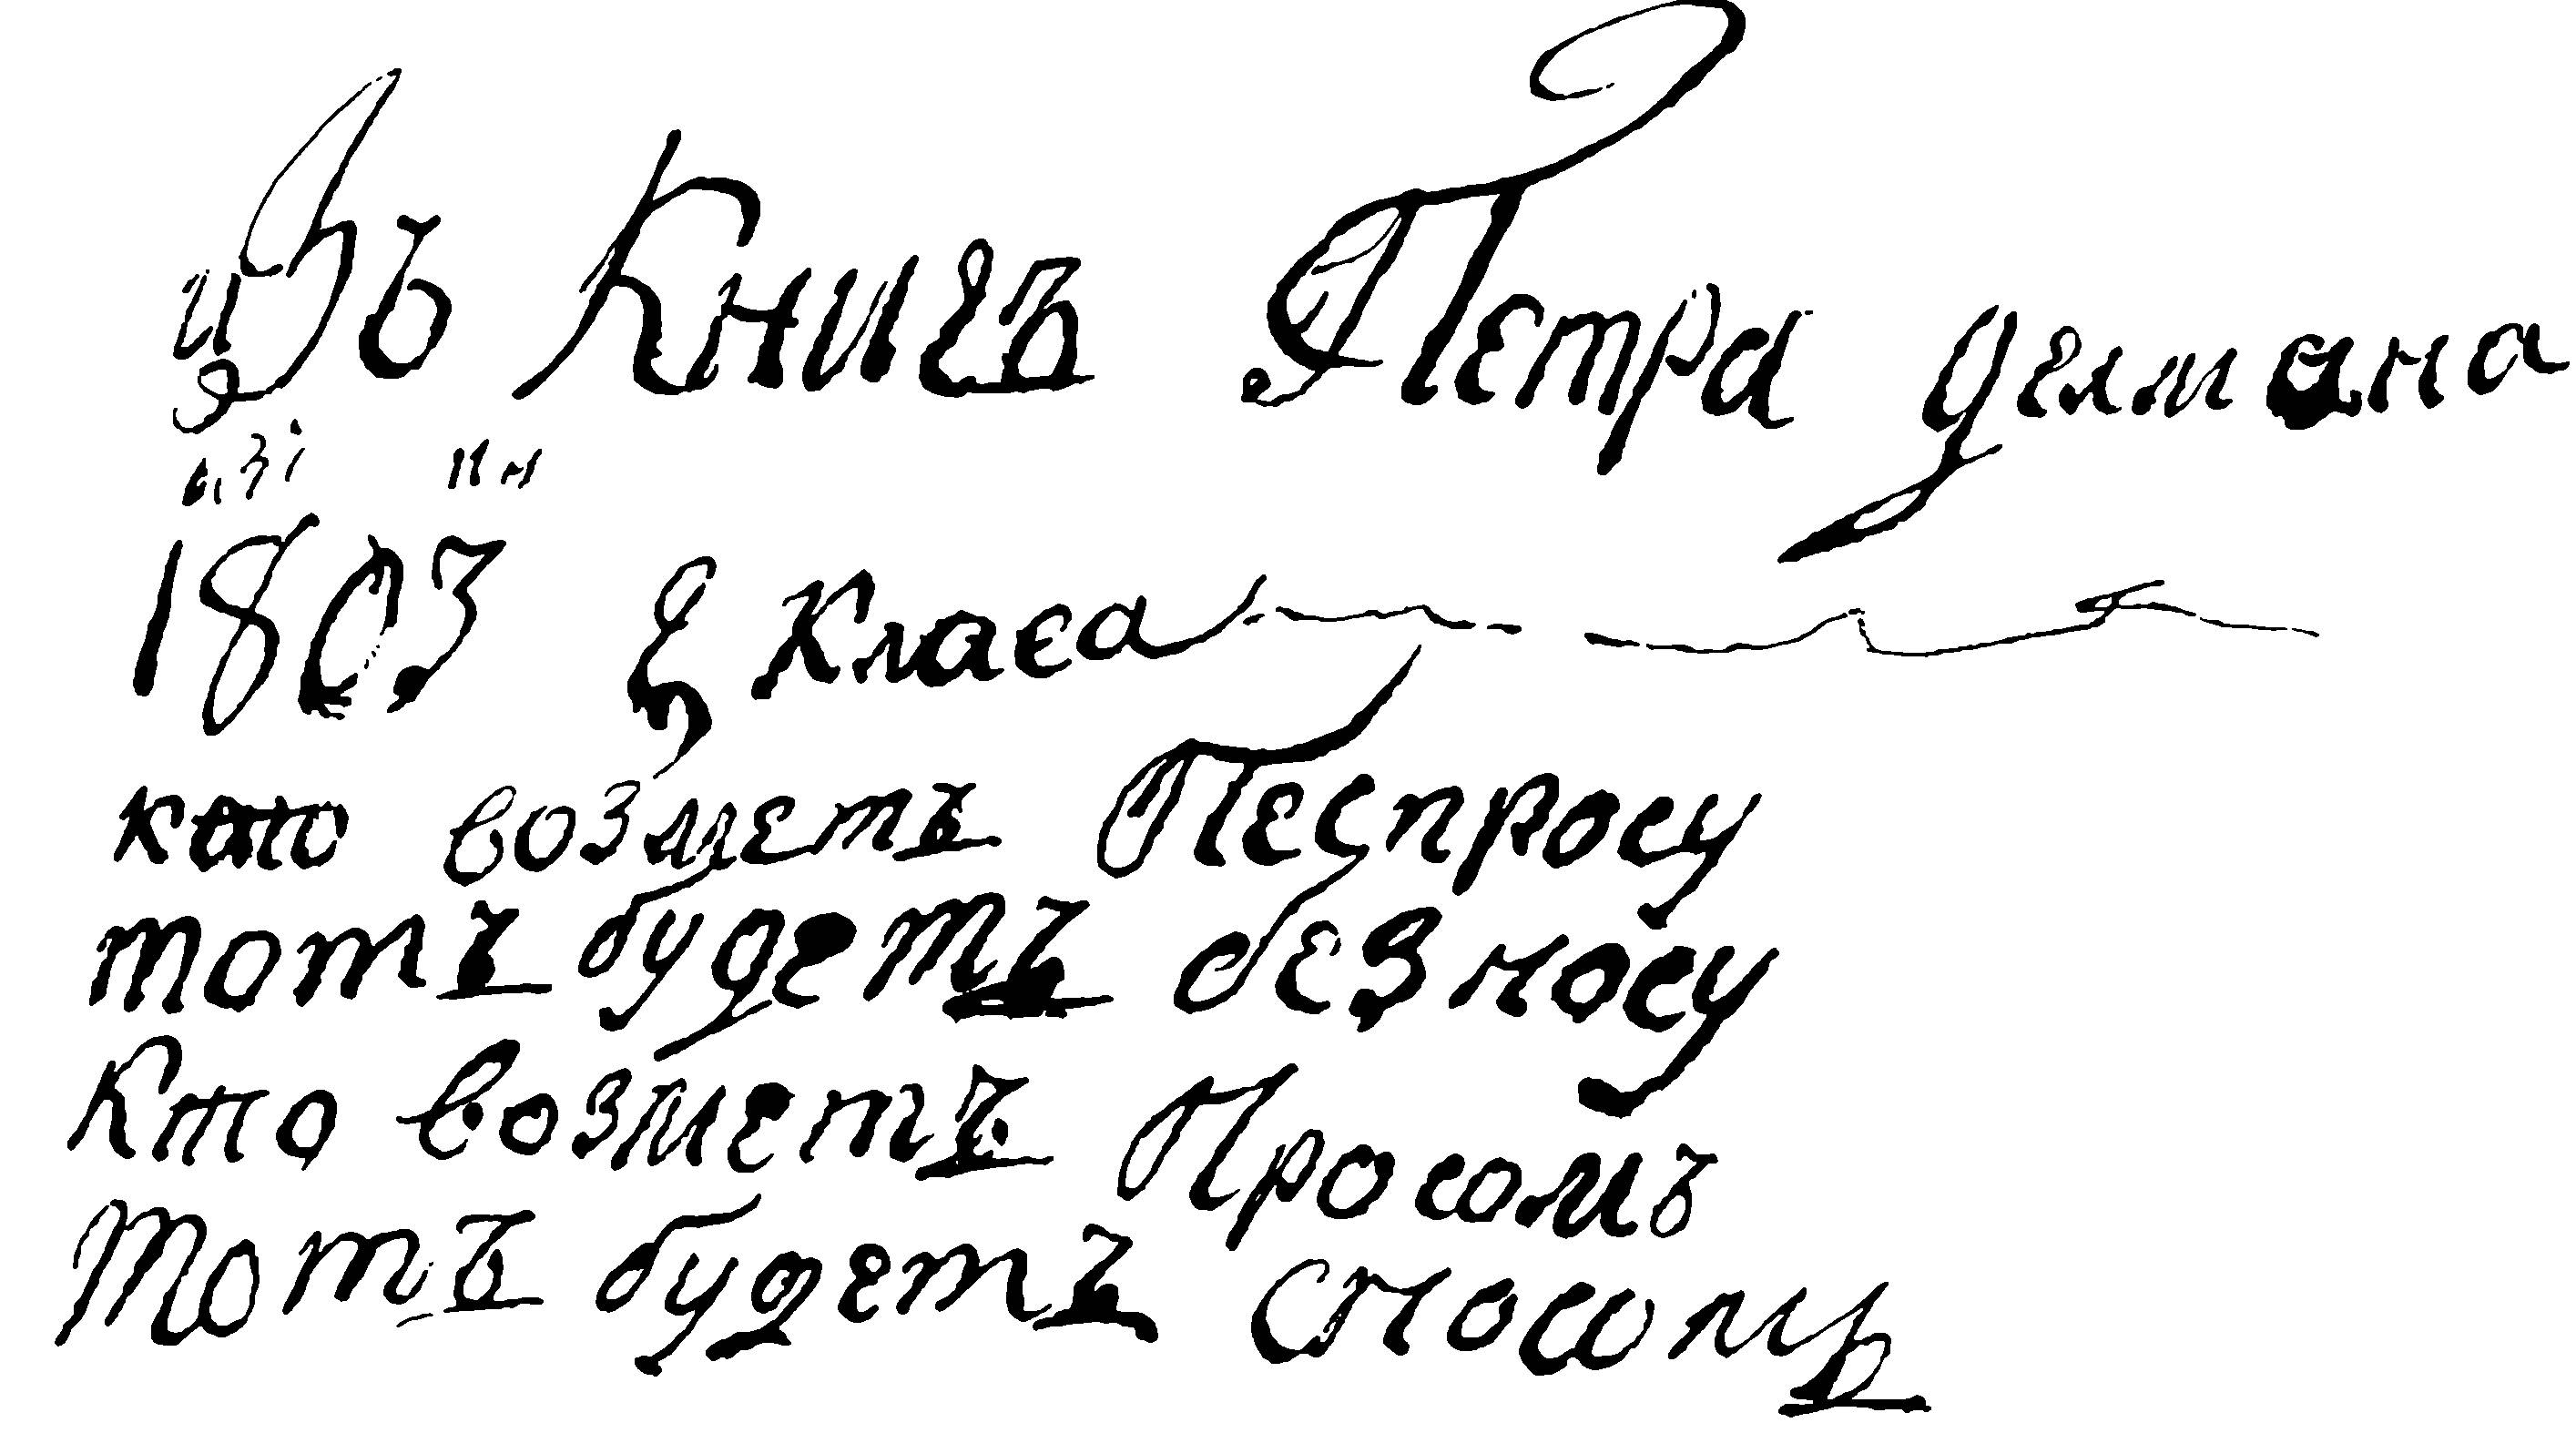 изъ Книгъ Петра демана
1803 Класа
кто возметъ Песпросу
тотъ будетъ безносу
Кто возметъ Просомъ
Тотъ будетъ сносомъ